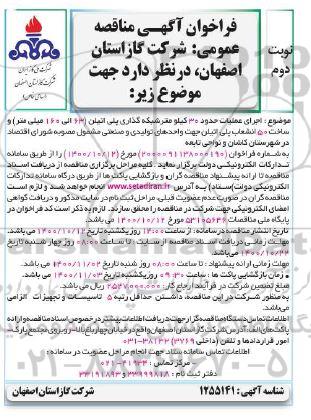 فراخوان آگهی مناقصه
عمومی: شرکت گاز استان
اصفهان، در نظر دارد جهت
موضوع زیر:
نوبت
دوم
شرکت ملی گاز ایران
شرکت گاز استان اصفهان
(سهامی خاص)
موضوع : اجرای عملیات حدود ۳۰ کیلو متر شبکه گذاری پلی اتیلن (۶۳ الی ۱۶۰ میلی متر) و
ساخت ۵۰۰ انشعاب پلی اتیلن جهت واحدهای تولیدی و صنعتی مشمول مصوبه شورای اقتصاد
در شهرستان کاشان و نواحی تابعه
به شماره فراخوان (۲۰۰۰۰۹۱۱۳۸۰۰۰۱۹۰) مورخ (۱۴۰۰/۱۰/۱۲) را از طریق سامانه
تدارکات الکترونیکی دولت برگزار نماید . کلیه مراحل برگزاری مناقصه از دریافت اسناد
مناقصه تا ارائه پیشنهاد مناقصه گران و بازگشایی پاکت ها از طریق درگاه سامانه تدارکات
الکترونیکی دولت(ستاد) به آدرس www.setadiran.ir انجام خواهد شد و لازم است
مناقصه گران در صورت عدم عضویت قبلی، مراحل ثبت نام در سایت مذکور و دریافت گواهی
امضای الکترونیکی جهت شرکت در مناقصه را محقق سازند. لازم به ذکر است کد فراخوان در
پایگاه ملی مناقصات ۵۳۱۰۵۶۴۶ مورخ ۱۴۰۰/۱۰/۱۲ می باشد.
تاریخ انتشار مناقصه در سامانه: از ساعت ۱۴:۰۰ روز یکشنبه تاریخ ۱۴۰۰/۱۰/۱۲ می باشد.
مهلت زمانی دریافت اسناد مناقصه از سایت : تا ساعت ۰۸:۰۰ روز چهار شنبه تاریخ
۱۴۰۰/۱۰/۲۲
مهلت زمانی ارائه پیشنهاد : تا ساعت ۰۸:۰۰ روز شنبه تاریخ ۱۴۰۰/۱۱/۰۲ می باشد.
زمان بازگشایی پاکت ها : ساعت ۰۹:۳۰ روز یکشنبه تاریخ ۱۴۰۰/۱۱/۰۳ می باشد.
مبلغ تضمین شرکت در فرآیند ارجاع کار: ریال می باشد.
به منظور شرکت در این مناقصه، داشتن حداقل رتبه ۵ تاسیسات و تجهیزات الزامی
می باشد.
اطلاعات تماس دستگاه مناقصه گزار جهت دریافت اطلاعات بیشتر در خصوص اسناد مناقصه و ارائه
پاکت های الف: آدرس شرکت گاز استان اصفهان واقع در خیابان چهارباغ بالا- روبروی مجتمع پارک-
امور قراردادها و تلفن: (داخلی ۳۷۶۹) ۳۸۱۳۲-۰۳۱
اطلاعات تماس سامانه ستاد جهت انجام مراحل عضویت در سامانه :
مرکز تماس : ۴۱۹۳۴-۰۲۱
دفتر ثبت نام : ۸۸۹۶۹۷۳۷ و ۸۵۱۹۳۷۶۸
شناسه آگهی : ۱۲۵۵۱۴۱
شرکت گاز استان اصفهان